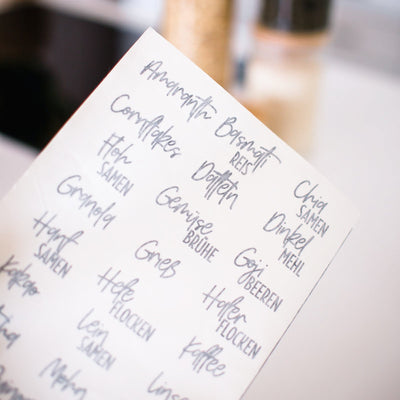 Amaranth Basmati REIS Chia SAMEN
Cornflakes Datteln Dinkel MEHL
Floh SAMEN Gemüse BRÜHE Goji BEEREN
Granola Grieß Hafer FLOCKEN
Hanf SAMEN Hefe FLOCKEN Kaffee
Kakao Lein SAMEN
Mohn